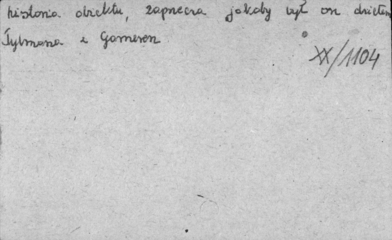 historia obiektu, zaprzecza jakoby był on dziełem
Tylmana z Gameren
XX/1104